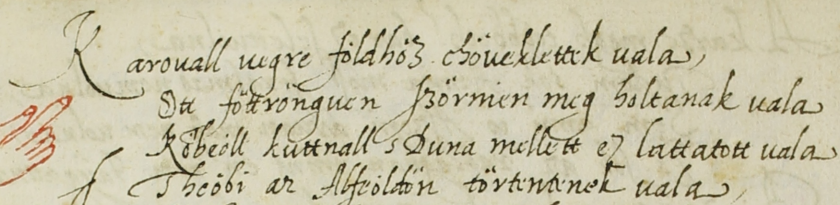 Karouall uegre földhöz chöueklettek uala,
Ott föttrönguen szörnien meg holtanak uala
Köbeöll kuttnall s Duna mellett ez lattatott uala
Theöbi az Alfeöldön törtentenek uala,